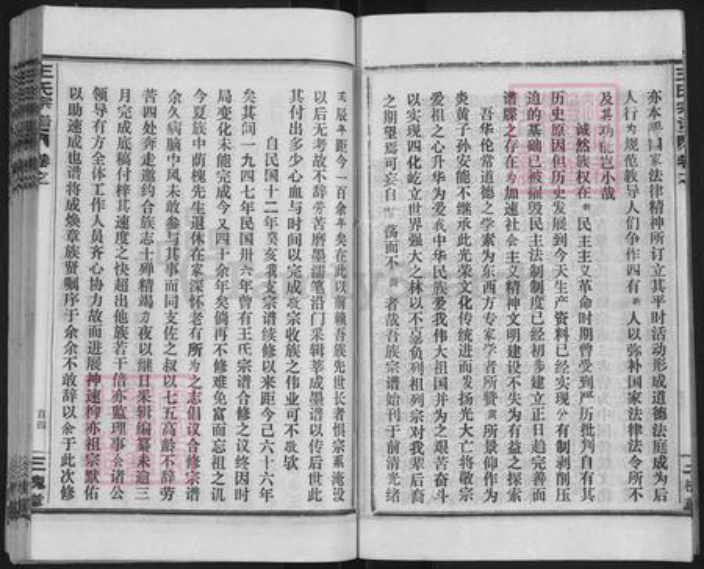 亦本乎国家法律精神所订立其平时活动形成道德法庭成为后
人行为规范教导人们争作四有新人以弥补国家法律法令所不
及其功能岂小哉
诚然族权在新民主主义革命时期曾受到严历批判自有其
历史原因但历史发展到今天生产资料已经实现公有制剥削压
迫的基础已被摧毁民主法制制度已经初步建立正日趋完善而
谱牒之存在为加速社会主义精神文明建设不失为有益之探索
吾华伦常道德之学素为东西方专家学者所赞 所景仰作为
炎黄子孙安能不继承此光荣文化传统进而发扬光大亡将敬宗
爱祖之心升华为爱我中华民族爱我伟大祖国并为之艰苦奋斗
以实现四化屹立世界强大之林以不辜负列祖列宗对我辈后裔
之期望焉可妄自 荡而不 者哉吾族宗谱始刊于前清光绪
壬辰年距今一百余年矣在此以前赖吾族先世长者惧宗系淹没
以后无考故不辞劳苦磨墨濡笔沿门采辑莘成墨谱以传后世此
其付出多少心血与时间以完成敬宗收族之伟业可不敬欤
自民国十二年癸亥我支宗谱续修以来距今己六十六年
矣其间一九四七年民国卅六年曾有王氏宗谱合修之议终因时
局变化未能完成今又四十余年矣倘再不修难免富而忘祖之讥
今夏族中荫槐先生退休在家深怀老有所为之志倡议合修宗谱
余久病脑中风未敢参与其事而同支佐之叔以七五高龄不辞劳
苦四处奔走邀约合族志士殚精竭力夜以继日采辑编纂未逾三
月完成底稿付梓其速度之快超出他族若干倍亦监理事会诸公
领导有方全体工作人员齐心协力故而进展神速抑亦祖宗默佑
以助速成也谱将成焕章族贤嘱序于余余不敢辞以余于此次修
王氏宗谱
卷之
首四
三槐堂